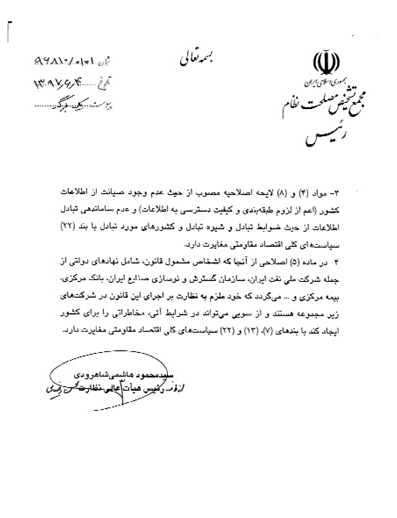 بسمه تعالی
جمهوری اسلامی ایران
مجمع تشخیص مصلحت نظام
رئیس
شماره ۰۱۰۱/۹۶۸۱۰
تاریخ ۱۳۹۷/۶/۴
پیوست
۳- مواد (۴) و (۸) لایحه اصلاحیه مصوب از حیث عدم وجود صیانت از اطلاعات
کشور (اعم از لزوم طبقه‌بندی و کیفیت دسترسی به اطلاعات) و عدم ساماندهی تبادل
اطلاعات از حیث ضوابط تبادل و شیوه تبادل و کشورهای مورد تبادل با بند (۲۲)
سیاست‌های کلی اقتصاد مقاومتی مغایرت دارد.
۴ـ در ماده (۵) اصلاحی از آنجا که اشخاص مشمول قانون، شامل نهادهای دولتی از
جمله شرکت ملی نفت ایران، سازمان گسترش و نوسازی صنایع ایران، بانک مرکزی،
بیمه مرکزی و ... می‌گردد که خود ملزم به نظارت بر اجرای این قانون در شرکت‌های
زیر مجموعه هستند و از سویی می‌تواند در شرایط آتی، مخاطراتی را برای کشور
ایجاد کند با بندهای (۷)، (۱۳) و (۲۲) سیاست‌های کلی اقتصاد مقاومتی مغایرت دارد.
سیدمحمود هاشمی شاهرودی
از طرف رئیس هیأت عالی نظارت